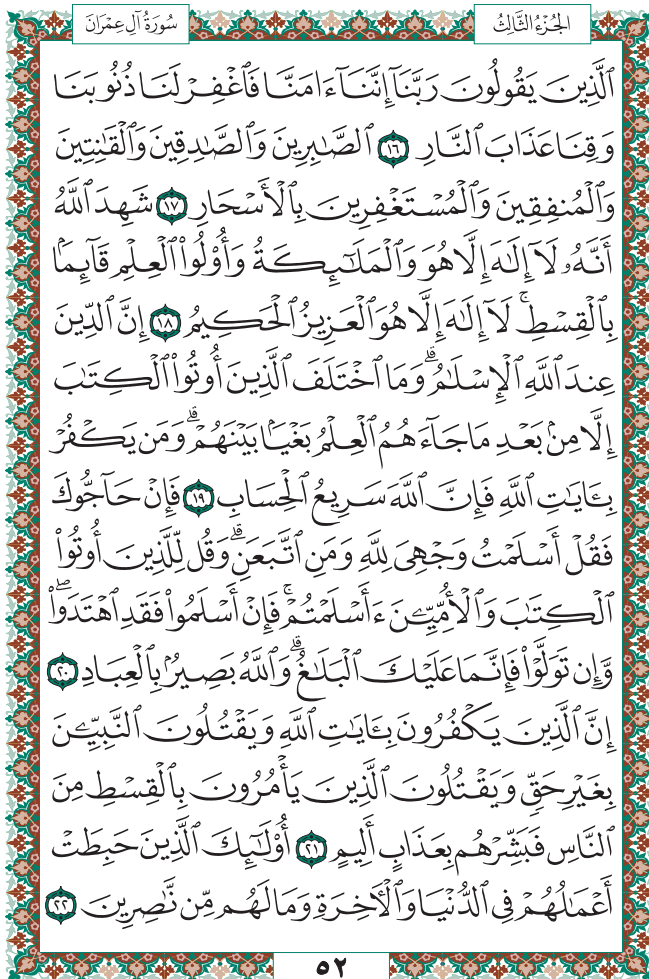 الجُزْءُ الثَّالِثُ
سُورَةُ آلِ عِمْرَانَ
ٱلَّذِينَ يَقُولُونَ رَبَّنَآ إِنَّنَآ ءَامَنَّا فَٱغْفِرْ لَنَا ذُنُوبَنَا
وَقِنَا عَذَابَ ٱلنَّارِ ١٦ ٱلصَّٰبِرِينَ وَٱلصَّٰدِقِينَ وَٱلْقَٰنِتِينَ
وَٱلْمُنفِقِينَ وَٱلْمُسْتَغْفِرِينَ بِٱلْأَسْحَارِ ١٧ شَهِدَ ٱللَّهُ
أَنَّهُۥ لَآ إِلَٰهَ إِلَّا هُوَ وَٱلْمَلَٰٓئِكَةُ وَأُو۟لُوا۟ ٱلْعِلْمِ قَآئِمًۢا
بِٱلْقِسْطِ ۚ لَآ إِلَٰهَ إِلَّا هُوَ ٱلْعَزِيزُ ٱلْحَكِيمُ ١٨ إِنَّ ٱلدِّينَ
عِندَ ٱللَّهِ ٱلْإِسْلَٰمُ ۗ وَمَا ٱخْتَلَفَ ٱلَّذِينَ أُوتُوا۟ ٱلْكِتَٰبَ
إِلَّا مِنۢ بَعْدِ مَا جَآءَهُمُ ٱلْعِلْمُ بَغْيًۢا بَيْنَهُمْ ۗ وَمَن يَكْفُرْ
بِـَٔايَٰتِ ٱللَّهِ فَإِنَّ ٱللَّهَ سَرِيعُ ٱلْحِسَابِ ١٩ فَإِنْ حَآجُّوكَ
فَقُلْ أَسْلَمْتُ وَجْهِىَ لِلَّهِ وَمَنِ ٱتَّبَعَنِ ۗ وَقُل لِّلَّذِينَ أُوتُوا۟
ٱلْكِتَٰبَ وَٱلْأُمِّيِّـۧنَ ءَأَسْلَمْتُمْ ۚ فَإِنْ أَسْلَمُوا۟ فَقَدِ ٱهْتَدَوا۟ ۖ
وَّإِن تَوَلَّوْا۟ فَإِنَّمَا عَلَيْكَ ٱلْبَلَٰغُ ۗ وَٱللَّهُ بَصِيرٌۢ بِٱلْعِبَادِ ٢٠
إِنَّ ٱلَّذِينَ يَكْفُرُونَ بِـَٔايَٰتِ ٱللَّهِ وَيَقْتُلُونَ ٱلنَّبِيِّـۧنَ
بِغَيْرِ حَقٍّ وَيَقْتُلُونَ ٱلَّذِينَ يَأْمُرُونَ بِٱلْقِسْطِ مِنَ
ٱلنَّاسِ فَبَشِّرْهُم بِعَذَابٍ أَلِيمٍ ٢١ أُو۟لَٰٓئِكَ ٱلَّذِينَ حَبِطَتْ
أَعْمَٰلُهُمْ فِى ٱلدُّنْيَا وَٱلْـَٔاخِرَةِ وَمَا لَهُم مِّن نَّٰصِرِينَ ٢٢
٥٢